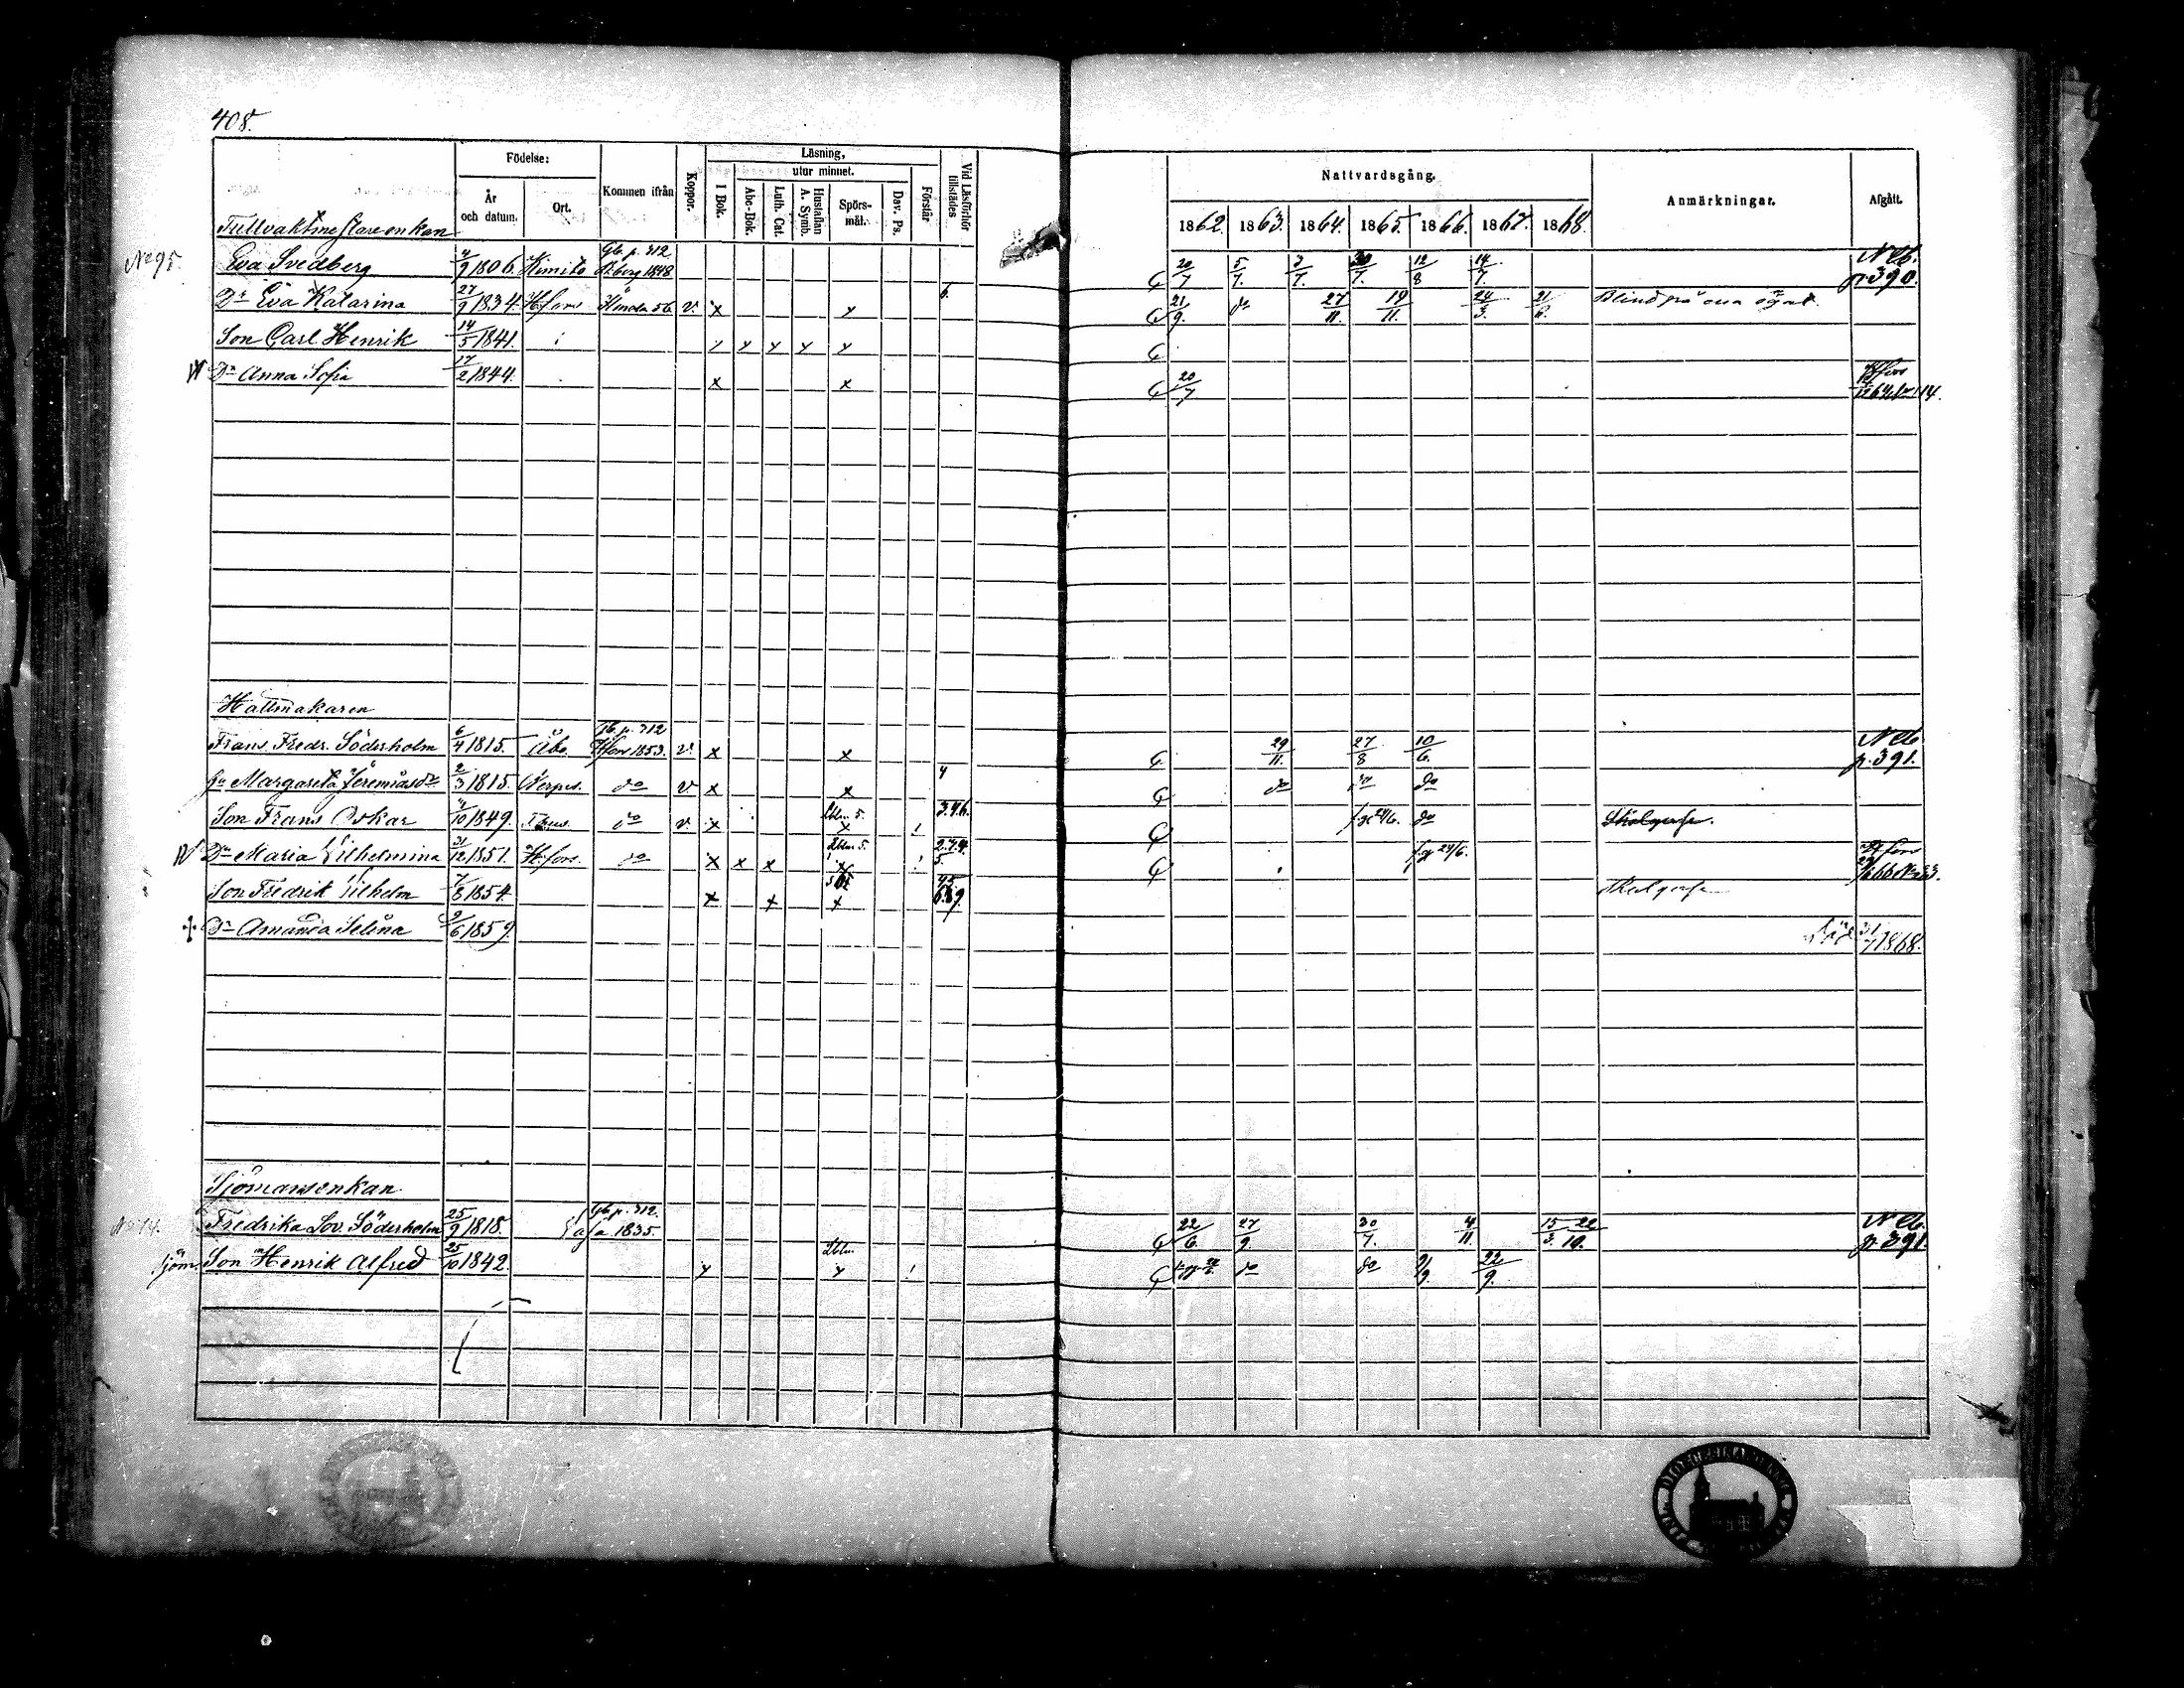 408.
Födelse:
Kommen ifrån
Koppor.
Läsning,
utur minnet.
År och datum.
Ort.
I Bok.
Abc-Bok.
Luth. Cat.
Hustaflan A. Symb.
Spörs-mål.
Dav. Ps.
Förstår
Vid Läsförhör tillstädes
Nattvardsgång.
Anmärkningar.
Afgått.
1862. 1863. 1864. 1865. 1866. 1867. 1868.
No 95.
Eva Svedberg 9 1806. Kimito Gb. p. 312 1848 20/7 5/7. 3/7. 30/7. 12/8 14/7. N.Cb. p. 390.
Dr Eva Katarina 27/9 1834. H.fors 56 v. x x 6. 21/9. do 27/11. 19/11. 24/3. 21/6. Blind på ena ögat.
Son Carl Henrik 14/5 1841.
Dr Anna Sofia 17/2 1844. x x 20/7 H.fors 14.
Hattmakaren
Frans Fredr. Söderholm 6/4 1815. Åbo. Gb. p. 312 H.fors 1853. v. x x 29/11. 27/8 10/6. N.Cb. p. 391.
Margareta Jeremiasdr 2/3 1815. Nerpes. do v. x x 4 do do do
Son Frans Oskar 10 1849. do v. x x 3.4.6. do
Dr Maria Vilhelmina 31/12 1851. H.fors. do x x x 2.7.4. 5. f.g 24/6. H.fors
Son Fredrik Vilhelm 7/8 1854. x x x
Dr Amanda Selina 2/6 1859. Död 31/7 1868.
Sjömansenkan
No 14.
Fredrika Lov. Söderholm 25/9 1818. Gb. p. 312. Vasa 1835. 22/6. 27/9. 30/7. 4/11. 15/3. 22/10. N.Cb. p. 391.
sjöm. Son Henrik Alfred 25/10 1842. do do 9. 22/9.